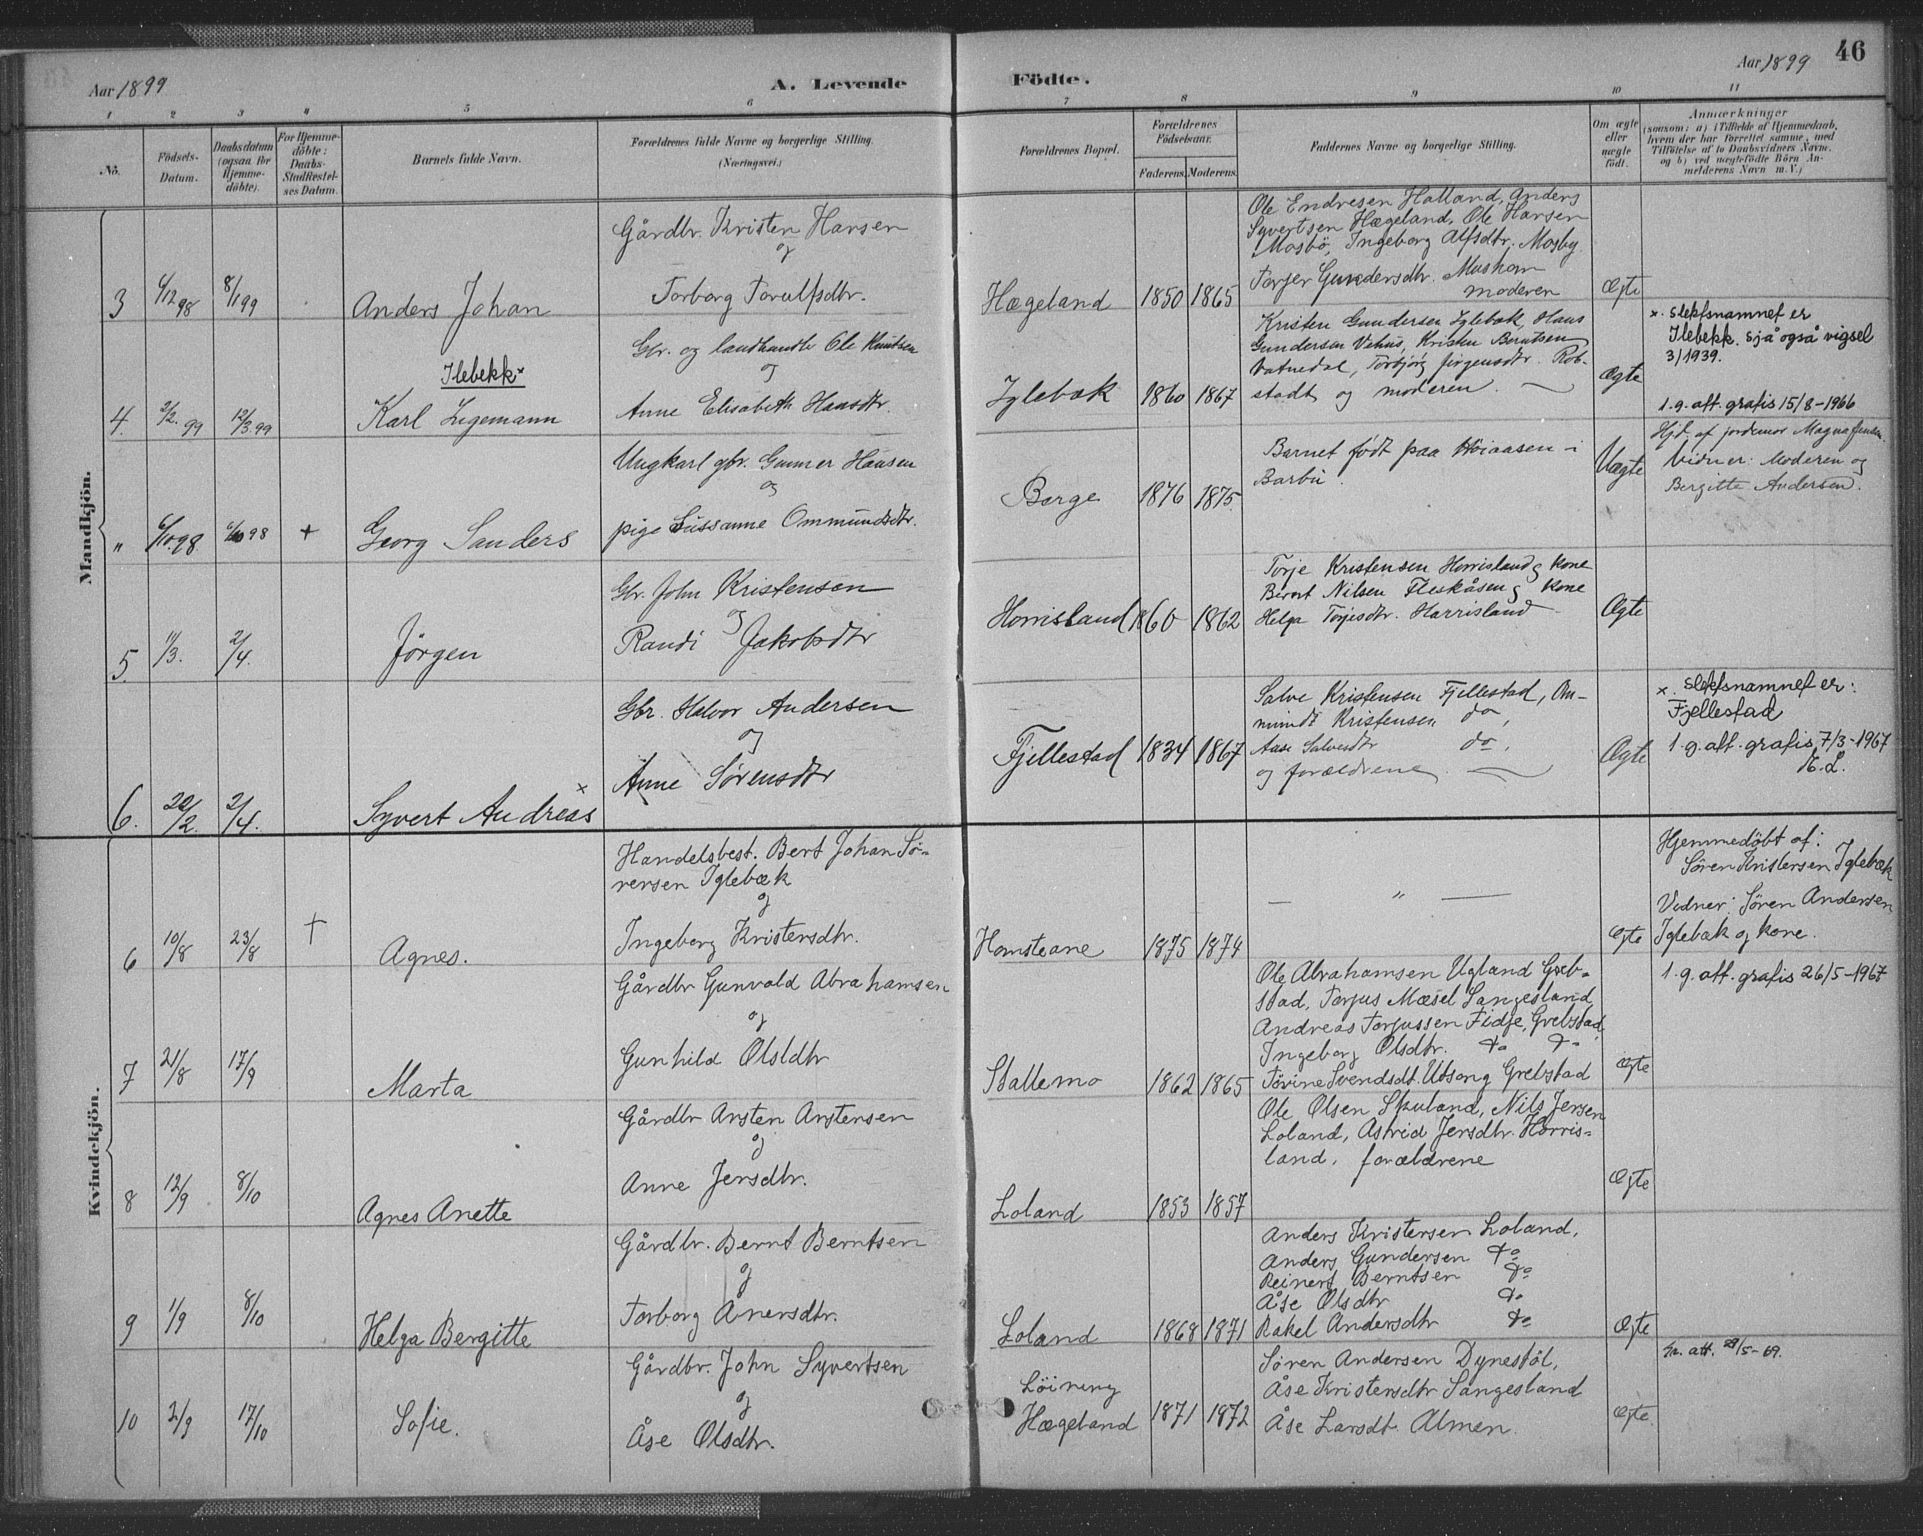 Aar 1899
A. Levende Födte.
Aar 1899
46
1 2 3 4 5 6 7 8 9 10 11
No.
Födsels-
Datum.
Daabsdatum
(ogsaa for
Hjemme-
döbte).
For Hjemme-
döbte:
Daabs-
Stadfæstel-
ses Datum.
Barnets fulde Navn.
Forældrenes fulde Navne og borgerlige Stilling.
(Næringsvei.)
Forældrenes Bopæl.
Forældrenes
Födselsaar.
Faderens. Moderens.
Faddernes Navne og borgerlige Stilling.
Om ægte
eller
uægte
födt.
Anmærkninger
(saasom: a) i Tilfælde af Hjemmedaab,
hvem der har forrettet samme, med
Tilföielse af to Daabsvidners Navne,
og b) ved uægtefödte Börn An-
melderens Navn m. V.)
Mandkjön.
3 6/12 98 8/1 99
Anders Johan
Gårdbr. Kristen Hansen
og
Torborg Torulfsdtr.
Hægeland 1850 1865
Ole Endresen Hålland, Anders
Syvertsen Hægeland, Ole Hansen
Mosbö, Ingeborg Alfsdtr. Mosby
Torjer Gundersdtr. Muskom
moderen
Ægte
4. 2/2. 99 12/3.99
Ilebekk x
Karl Ligemann
Gbr. og landhandle Ole Knutsen
og
Anne Elisabeth Hansdtr.
Iglebæk 1860 1867
Kristen Gundersen Iglebæk, Hans
Gundersen Vehus, Kristen Berntsen
Vatnedal, Torbjörg Jörgensdtr. Rob-
stadt og moderen.
Ægte
x. slektsnamnet er
Ilebekk. sjå også vigsel
3/1939.
1.g. att. gratis 15/8-1966
" 6/10 98 6/10 98 +
Georg Sanders
Ungkarl gbr. Gunner Hansen
og
pige Sussanne Ommundsdtr.
Berge 1876 1875
Barnet födt paa Höiaasen i
Barbu.
Uægte
Hjd. af jordemor Magna Jensen.
Vidner: Moderen og
Bergitte Andersen.
5. 11/3. 2/4.
Jörgen
Gbr. John Kristensen
og
Randi Jakobsdtr
Horrisland 1860 1862
Torje Kristensen Horrisland og kone
Bernt Nilsen Fleskåsen og kone
Helga Torjesdtr. Harrisland
Ægte
6. 22/2. 2/4.
Syvert Andreas x
Gbr. Halvor Andersen
og
Anne Sørensdtr
Fjellestad 1834 1867
Salve Kristensen Fjellestad, Om-
mundt Kristensen do,
Aase Salvesdtr do,
og forældrene.
Ægte
x. slektsnamnet er:
Fjellestad
1.g. att. gratis 7/3-1967
K.L.
Kvindekjön.
6 10/8 23/8 †
Agnes.
Handelsbest. Bert Johan Sö-
rensen Iglebæk
og
Ingeborg Kristensdtr.
Homsteane 1875 1874
— " —
Ægte
Hjemmedöbt af:
Sören Kristensen Iglebæk
Vidner: Sören Andersen
Iglebæk og kone.
7 21/8 17/9
Marta
Gårdbr Gunvald Abrahamsen
og
Gunhild Olsdtr
Stallemo 1862 1865
Ole Abrahamsen Ugland Greb-
stad, Torjus Mæsel Langesland,
Andreas Torjussen Fidje, Grebstad,
Ingeborg Olsdtr. do do
Tövine Svendsdt. Utsong Grebstad
Ægte
1.g. att. gratis 26/5-1967
8 12/9 8/10
Agnes Anette
Gårdbr Arsten Arstensen
og
Anne Jensdtr.
Loland 1853 1857
Ole Olsen Skuland, Nils Jensen
Loland, Astrid Jensdtr. Horris-
land, forældrene
Ægte
9 1/9 8/10
Helga Bergitte
Gårdbr. Bernt Berntsen
og
Torborg Ånensdtr.
Loland 1868 1871
Anders Kristensen Loland,
Anders Gundersen do
Reinert Berntsen do
Åse Olsdtr do
Rakel Andersdtr do
Ægte
10 2/9 17/10
Sofie.
Gårdbr. John Syvertsen
og
Åse Olsdtr.
Löining
Hægeland 1871 1872
Sören Andersen Dynestöl,
Åse Kristensdtr Langesland
Åse Larsdt Almen.
Ægte.
att. 29/5-69.